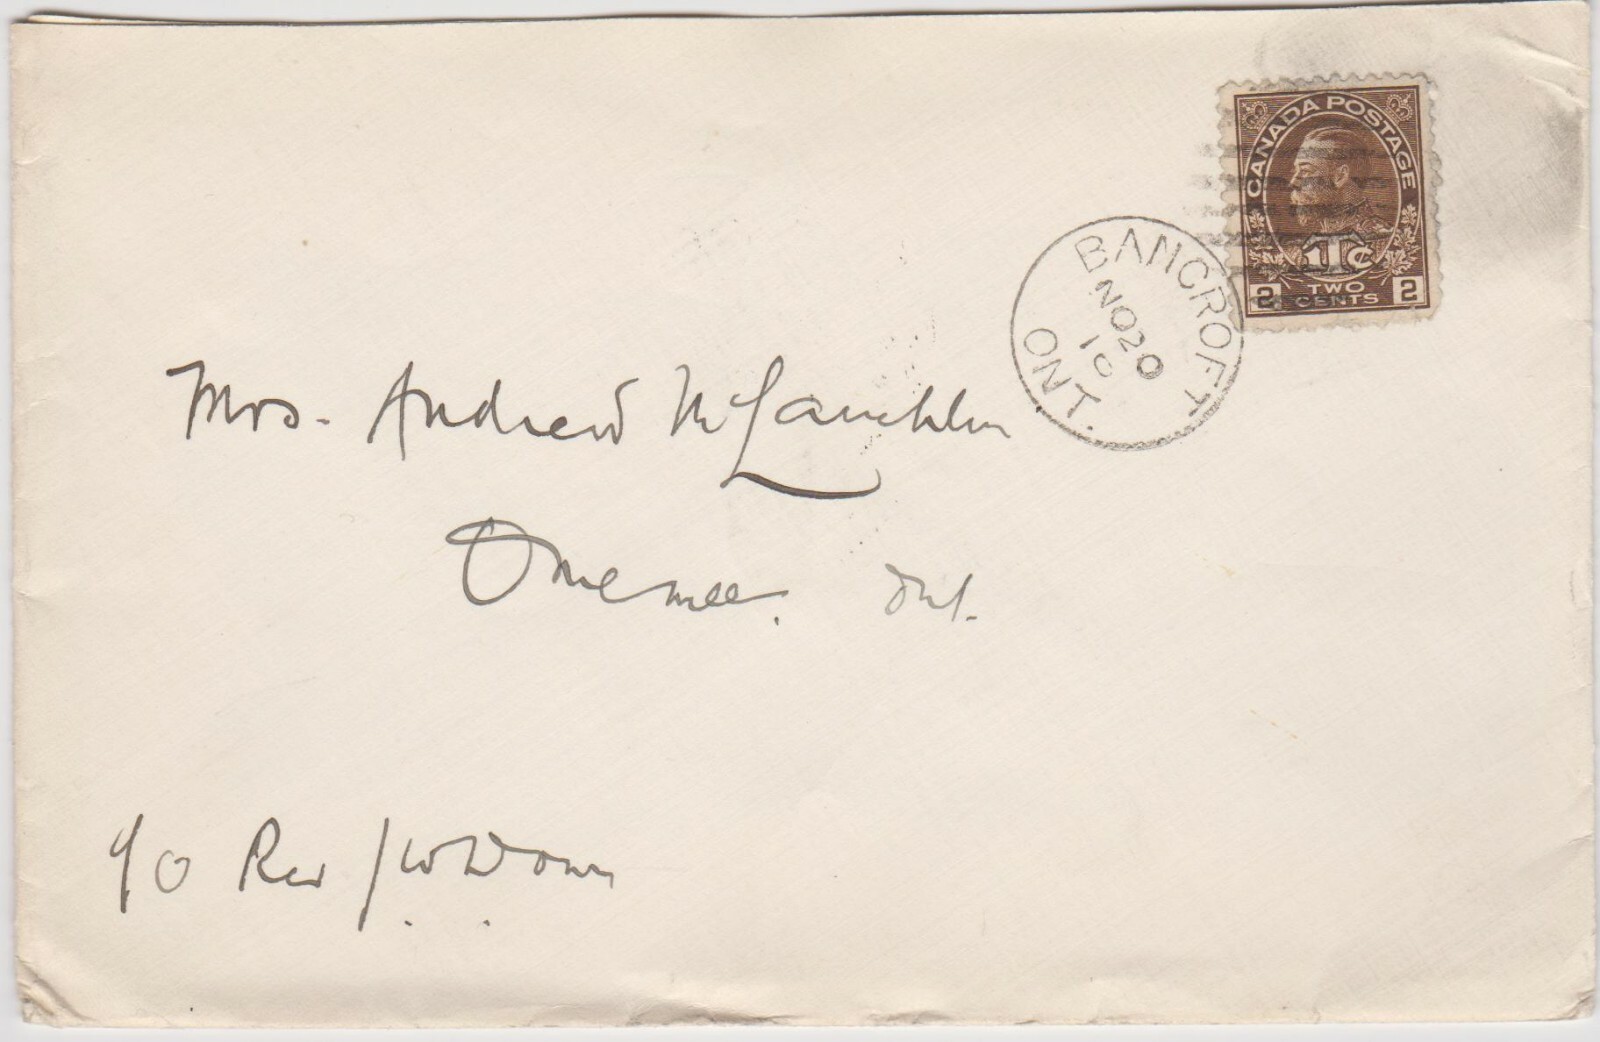 CANADA POSTAGE
1Tc
2 TWO CENTS 2
BANCROFT
NO 20
10
ONT.
Mrs. Andrew McLauchlin
Omemee. Ont.
c/o Rev J. W. Down